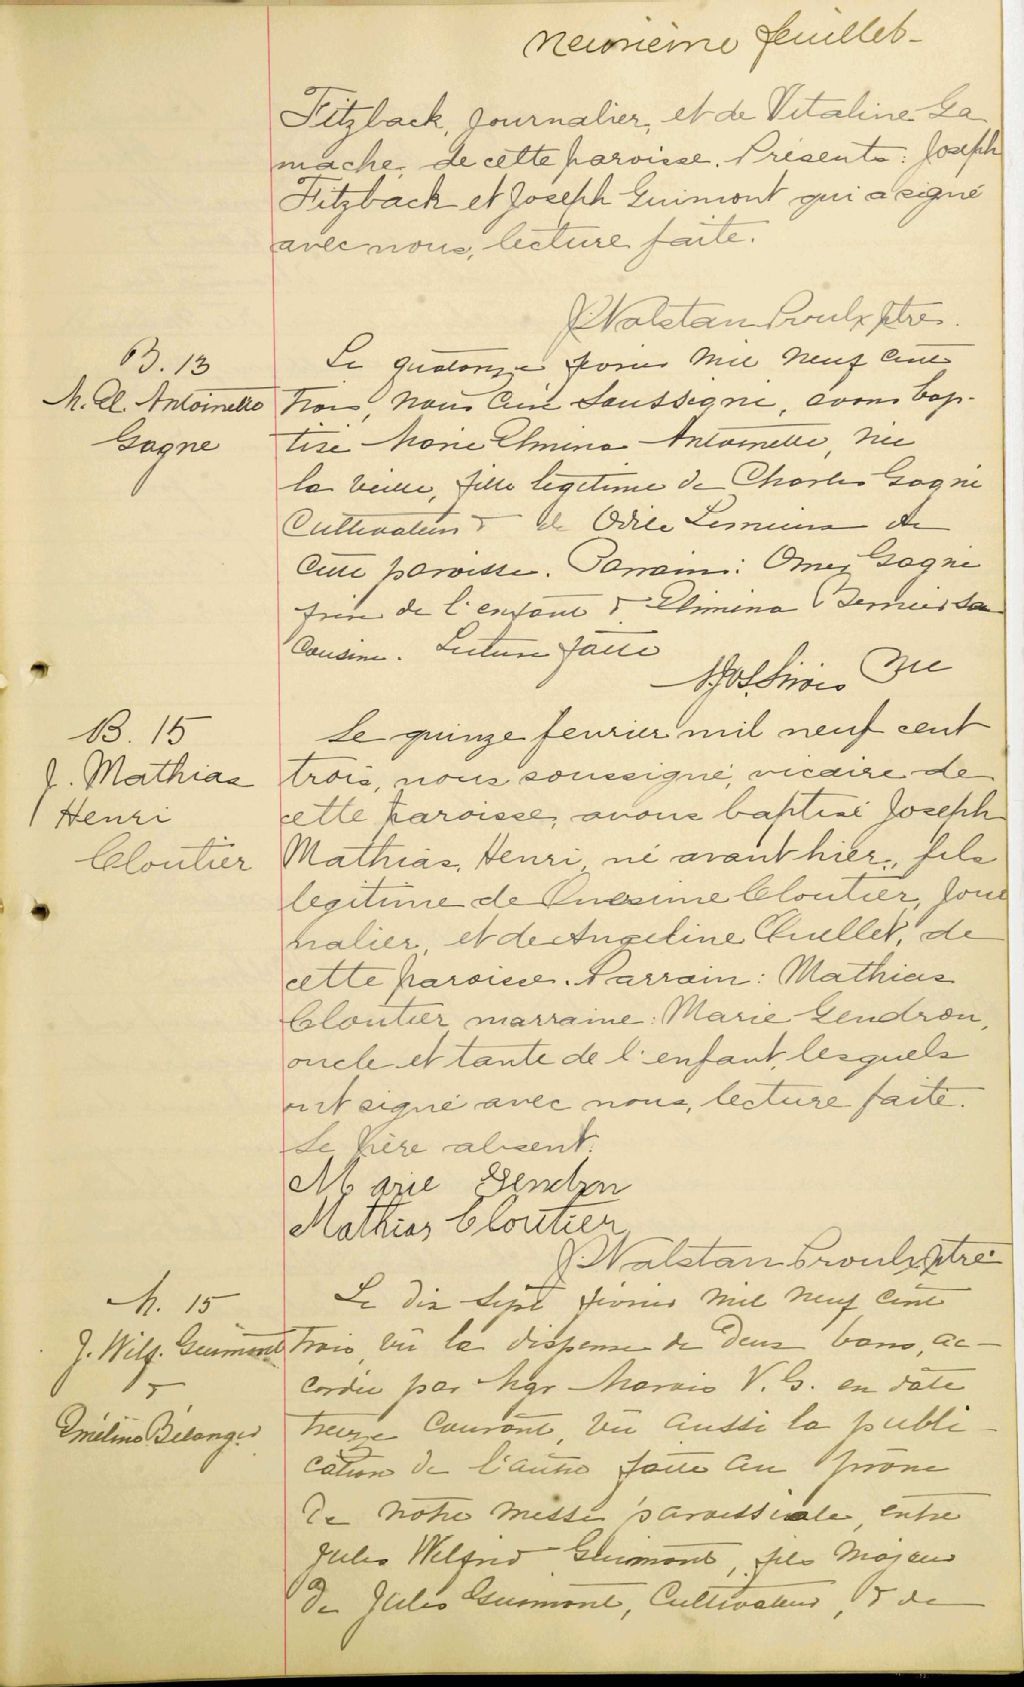 neuvième feuillet-
Fitzback, journalier, et de Vitaline Ga
mache, de cette paroisse. Présents: Joseph
Fitzback et Joseph Guimont qui a signé
avec nous, lecture faite.
J. Walstan Proulx Ptre.
B. 13
M. El. Antoinette
Gagne
Le quatorze fevrier mil neuf cent
trois, nous Curé soussigné, avons bap-
tisé Marie Elmina Antoinette, née
la veille, fille légitime de Charles Gagné
Cultivateur & de Odile Lemieux de
cette paroisse. Parrain: Omer Gagné
frère de l'enfant & Elimina Bernier sa
Cousine. Lecture faite
Sirois Cure
B. 15
J. Mathias
Henri
Cloutier
Le quinze fevrier mil neuf cent
trois, nous soussigné, vicaire de
cette paroisse, avons baptisé Joseph
Mathias, Henri, né avant hier, fils
legitime de Onesime Cloutier, jour
nalier, et de Angeline Ouellet, de
cette paroisse. Parrain: Mathias
Cloutier, marraine: Marie Gendron,
oncle et tante de l'enfant, lesquels
ont signé avec nous, lecture faite.
Le père absent.
Marie Gendron
Mathias Cloutier
J. Walstan Proulx, Ptre.
M. 15
J. Wilf. Guimont
&
Eméline Bélanger
Le dix sept février mil neuf cent
trois, vu la dispense de deux bans, ac-
cordée par Mgr Marois V. G. en date
treize courant, vu aussi la publi-
cation de l'autre faite au prône
de notre messe paroissiale, entre
Jules Wilfrid Guimont, fils majeur
de Jules Guimont, Cultivateur, & de